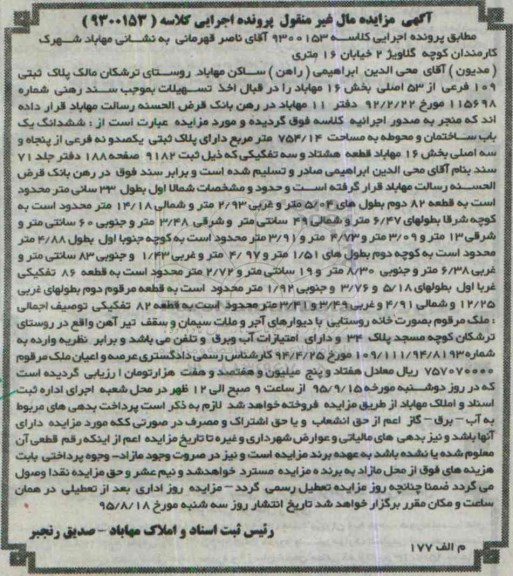 آگهی مزایده مال غیر منقول پرونده اجرایی کلاسه ( ۹۳۰۰۱۵۳ )
مطابق پرونده اجرایی کلاسه ۹۳۰۰۱۵۳ آقای ناصر قهرمانی به نشانی مهاباد شهرک
کارمندان کوچه گلاویژ ۲ خیابان ۱۶ متری
( مدیون ) آقای محی الدین ابراهیمی ( راهن ) ساکن مهاباد روستای ترشکان مالک پلاک ثبتی
۱۰۹ فرعی از ۵۳ اصلی بخش ۱۶ مهاباد را در قبال اخذ تسهیلات بموجب سند رهنی شماره
۱۱۵۶۹۸ مورخ ۹۲/۲/۲۲ دفتر ۱۱ مهاباد در رهن بانک قرض الحسنه رسالت مهاباد قرار داده
اند که منجر به صدور اجرائیه کلاسه فوق گردیده و مورد مزایده عبارت است از : ششدانگ یک
باب ساختمان و محوطه به مساحت ۷۵۴/۱۴ متر مربع دارای پلاک ثبتی یکصدو نه فرعی از پنجاه و
سه اصلی بخش ۱۶ مهاباد قطعه هشتاد و سه تفکیکی که ذیل ثبت ۹۱۸۲ صفحه ۱۸۸ دفتر جلد ۷۱
سند بنام آقای محی الدین ابراهیمی صادر و تسلیم شده است و برابر سند فوق در رهن بانک قرض
الحسنه رسالت مهاباد قرار گرفته است و حدود و مشخصات شمالا اول بطول ۳۳ سانی متر محدود
است به قطعه ۸۲ دوم بطول های ۵/۰۴ متر و غربی ۲/۹۳ متر و شمالی ۱۴/۱۸ متر محدود است به
کوچه شرقا بطولهای ۶/۴۷ متر و شمالی ۴۹ سانتی متر و شرقی ۳/۴۸ متر و جنوبی ۶۰ سانتی متر و
شرقی ۱۳ متر و ۳/۰۹ متر و ۴/۷۳ متر و ۳/۹۱ متر محدود است به کوچه جنوبا اول بطول ۴/۸۸ متر
محدود است به کوچه دوم بطول های ۱/۵۱ متر و ۴/۹۷ متر و غربی ۱/۴۳ و جنوبی ۸۳ سانتی متر و
غربی ۶/۳۸ متر و جنوبی ۸/۳۰ متر و ۱۹ سانتی متر و ۲/۷۲ متر محدود است به قطعه ۸۶ تفکیکی
غربا اول بطولهای ۵/۱۸ و ۳/۷۶ و جنوبی ۱/۹۲ متر محدود است به قطعه مرقوم دوم بطولهای غربی
۱۲/۲۵ و شمالی ۴/۹۱ و غربی ۳/۴۹ و ۳/۴۱ متر محدود است به قطعه ۸۲ تفکیکی توصیف اجمالی
: ملک مرقوم بصورت خانه روستایی با دیوارهای آجر و ملات سیمان و سقف تیر آهن واقع در روستای
ترشکان کوچه مسجد پلاک ۳۴ و دارای امتیازات آب وبرق و تلفن می باشد و برابر نظریه وارده به
شماره ۱۰۹/۱۱۱/۹۴/۸۱۹۳ مورخ ۹۴/۴/۲۵ کارشناس رسمی دادگستری عرصه و اعیان ملک مرقوم
۷۵۷۰۷۰۰۰۰ ریال معادل هفتاد و پنج میلیون و هفتصد و هفت هزارتومان ارزیابی گردیده است
که در روز دوشنبه مورخه ۹۵/۹/۱۵ از ساعت ۹ صبح الی ۱۲ ظهر در محل شعبه اجرای اداره ثبت
اسناد و املاک مهاباد از طریق مزایده فروخته خواهد شد لازم به ذکر است پرداخت بدهی های مربوط
به آب – برق– گاز اعم از حق انشعاب و یا حق اشتراک و مصرف در صورتی ککه مورد مزایده دارای
آنها باشد و نیز بدهی های مالیاتی و عوارض شهرداری و غیره تا تاریخ مزایده اعم از اینکه رقم قطعی آن
معلوم شده یا نشده باشد به عهده برنده مزایده است و نیز در صروت وجود مازاد– وجوه پرداختی بابت
هزینه های فوق از محل مازاد به برنده مزایده مسترد خواهدشد و نیم عشر و حق مزایده نقدا وصول
می گردد ضمنا چنانچه روز مزایده تعطیل رسمی گردد – مزایده روز اداری بعد از تعطیلی در همان
ساعت و مکان مقرر برگزار خواهد شد تاریخ انتشار روز سه شنبه مورخ ۹۵/۸/۱۸
رئیس ثبت اسناد و املاک مهاباد – صدیق رنجبر
م الف ۱۷۷